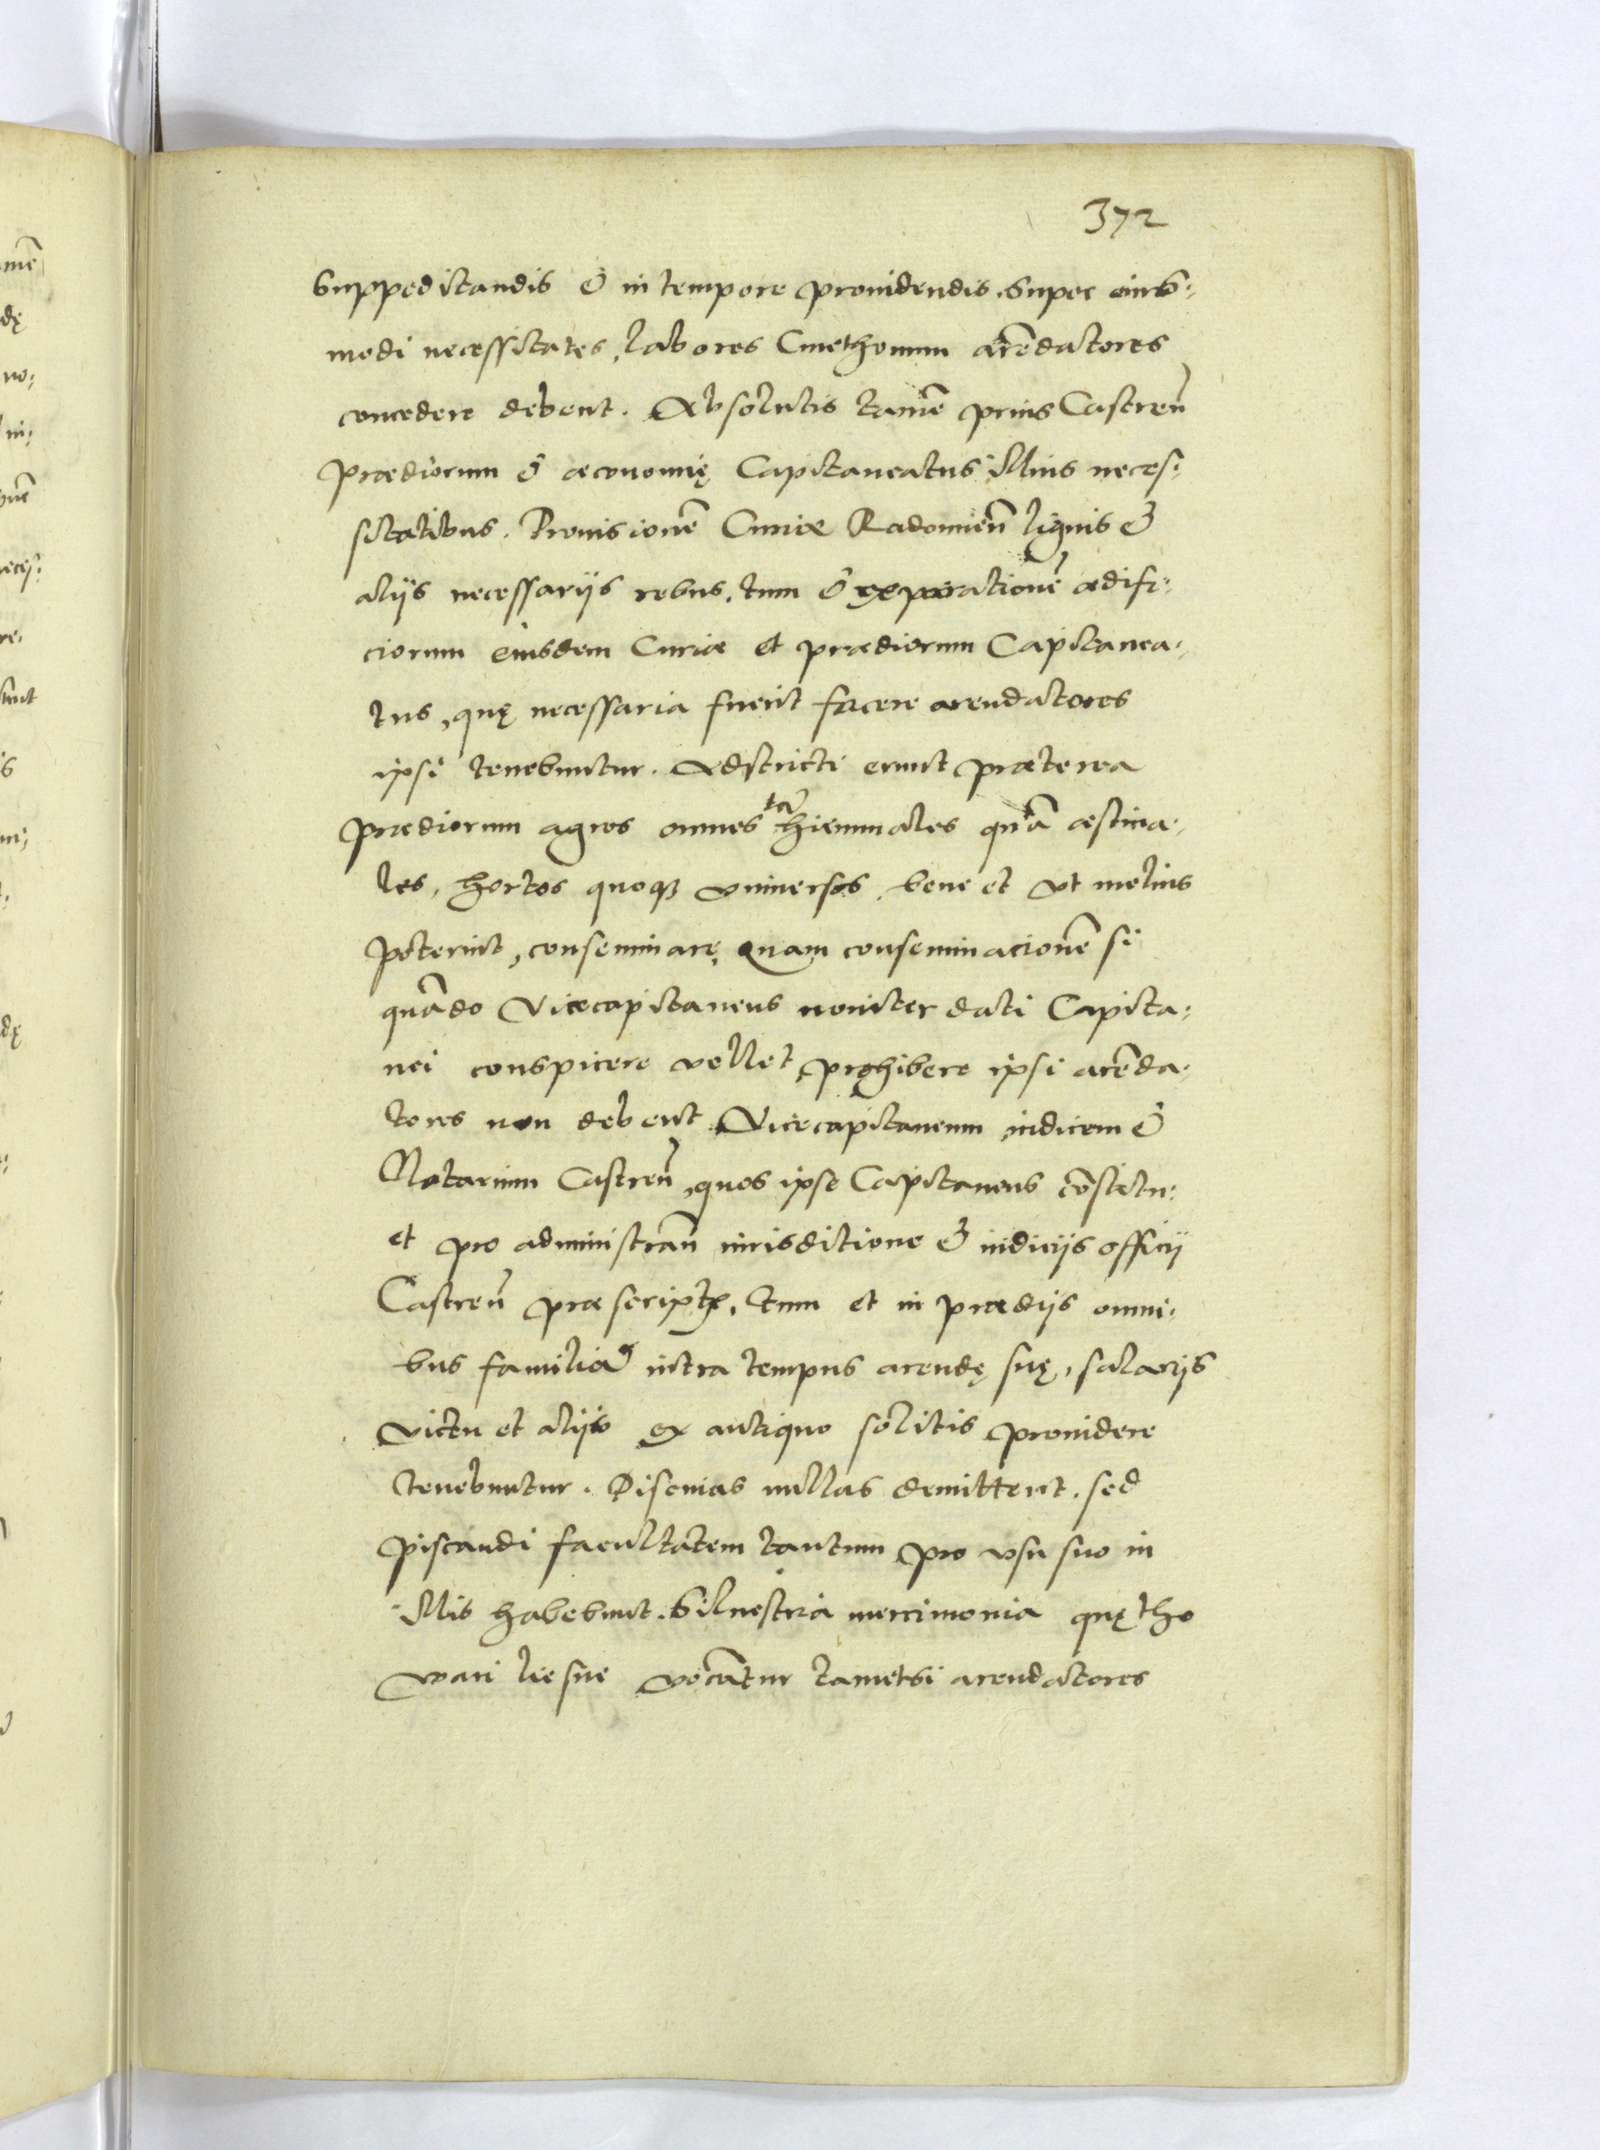 372
Suppeditandis & in tempore prouidendis. Super eius-
modi necessitates, labores Cmethonum arēdatores
concedere debent. Absolutis tamē prius Castreñ
prædiorum & œconomię Capitaneatus illius neces-
sitatibus. Prouisionē Curiæ Radomieñ lignis &
alijs necessarijs rebus, tum & reparationē ædifi-
ciorum eiusdem Curiæ et prædiorum Capitanea-
tus, quę necessaria fuerit facere arendatores
ipsi tenebuntur. Adstricti erunt præterea
prædiorum agros omnes tā hiemales quā æstiua-
les, hortos quoqȝ vniuersos, bene et vt melius
poterint, conseminarę, Quam conseminationē si
quādo Vicecapitaneus nouiter dati Capita-
nei conspicere vellet, prohibere ipsi arēda-
tores non debent. Vicecapitaneum iudicem &
Notarium Castreñ, quos ipse Capitaneus cōstitu-
et pro administrañ iurisditione & iudicijs officij
Castreñ præscript, tum et in prædijs omni-
bus familiā intra tempus arendę suę, salarijs
victu et alijs ex antiquo solitis prouidere
tenebuntur. Piscinas nullas demittent, sed
piscandi facultatem tantum pro vsu suo in
illis habebunt. Siluestria mercimonia quę tho
wari liesne vocātur tametsi arendatores